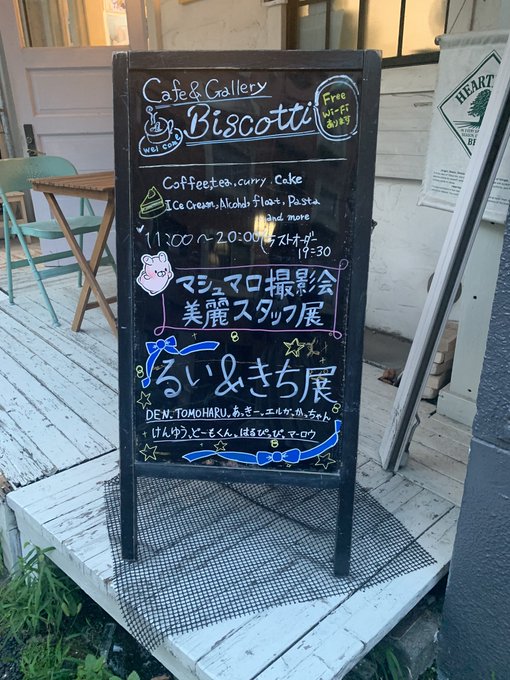 Cafe & Gallery
Biscotti
Free
Wi-Fi
あります
welcome
Coffee, tea, curry. Cake
Ice Cream, Alcohol, float, Pasta
and more
11:00～20:00 (ラストオーダー
19:30
マシュマロ撮影会
美麗スタッフ展
るい&きち展
DEN. TOMOHARU. あっきー. エルカ. かっちゃん
けんゆう. どーもくん. はるぴっぴ. マーロウ
HEART